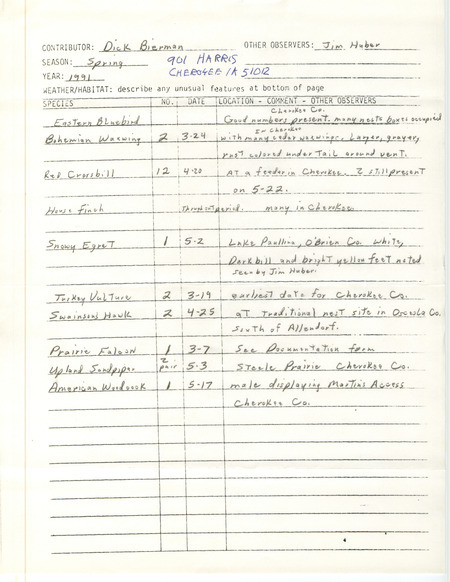 CONTRIBUTOR: Dick Bierman OTHER OBSERVERS: Jim Huber
SEASON: Spring 901 HARRIS
YEAR: 1991 CHEROKEE IA 51012
WEATHER/HABITAT: describe any unusual features at bottom of page
SPECIES NO. DATE LOCATION - COMMENT - OTHER OBSERVERS
Cherokee Co.
Eastern Bluebird Good numbers present, many nests boxes occupied
in Cherokee
Bohemian Waxwing 2 3-24 with many cedar waxwings. Larger, grayer,
rust colored under tail around vent.
Red Crossbill 12 4-20 at a feeder in Cherokee. 2 still present
on 5-22.
House Finch Throughout period. many in Cherokee
Snowy Egret 1 5-2 Lake Paullina, O'Brien Co. White,
Dark bill and bright yellow feet noted
seen by Jim Huber.
Turkey Vulture 2 3-19 earliest date for Cherokee Co.
Swainsons Hawk 2 4-25 at Traditional nest site in Osceola Co.
South of Allendorf.
Prairie Falcon 1 3-7 See Documentation form
Upland Sandpiper 2 pair 5-3 Steele Prairie Cherokee Co.
American Woodcock 1 5-17 male displaying Martins Access
Cherokee Co.